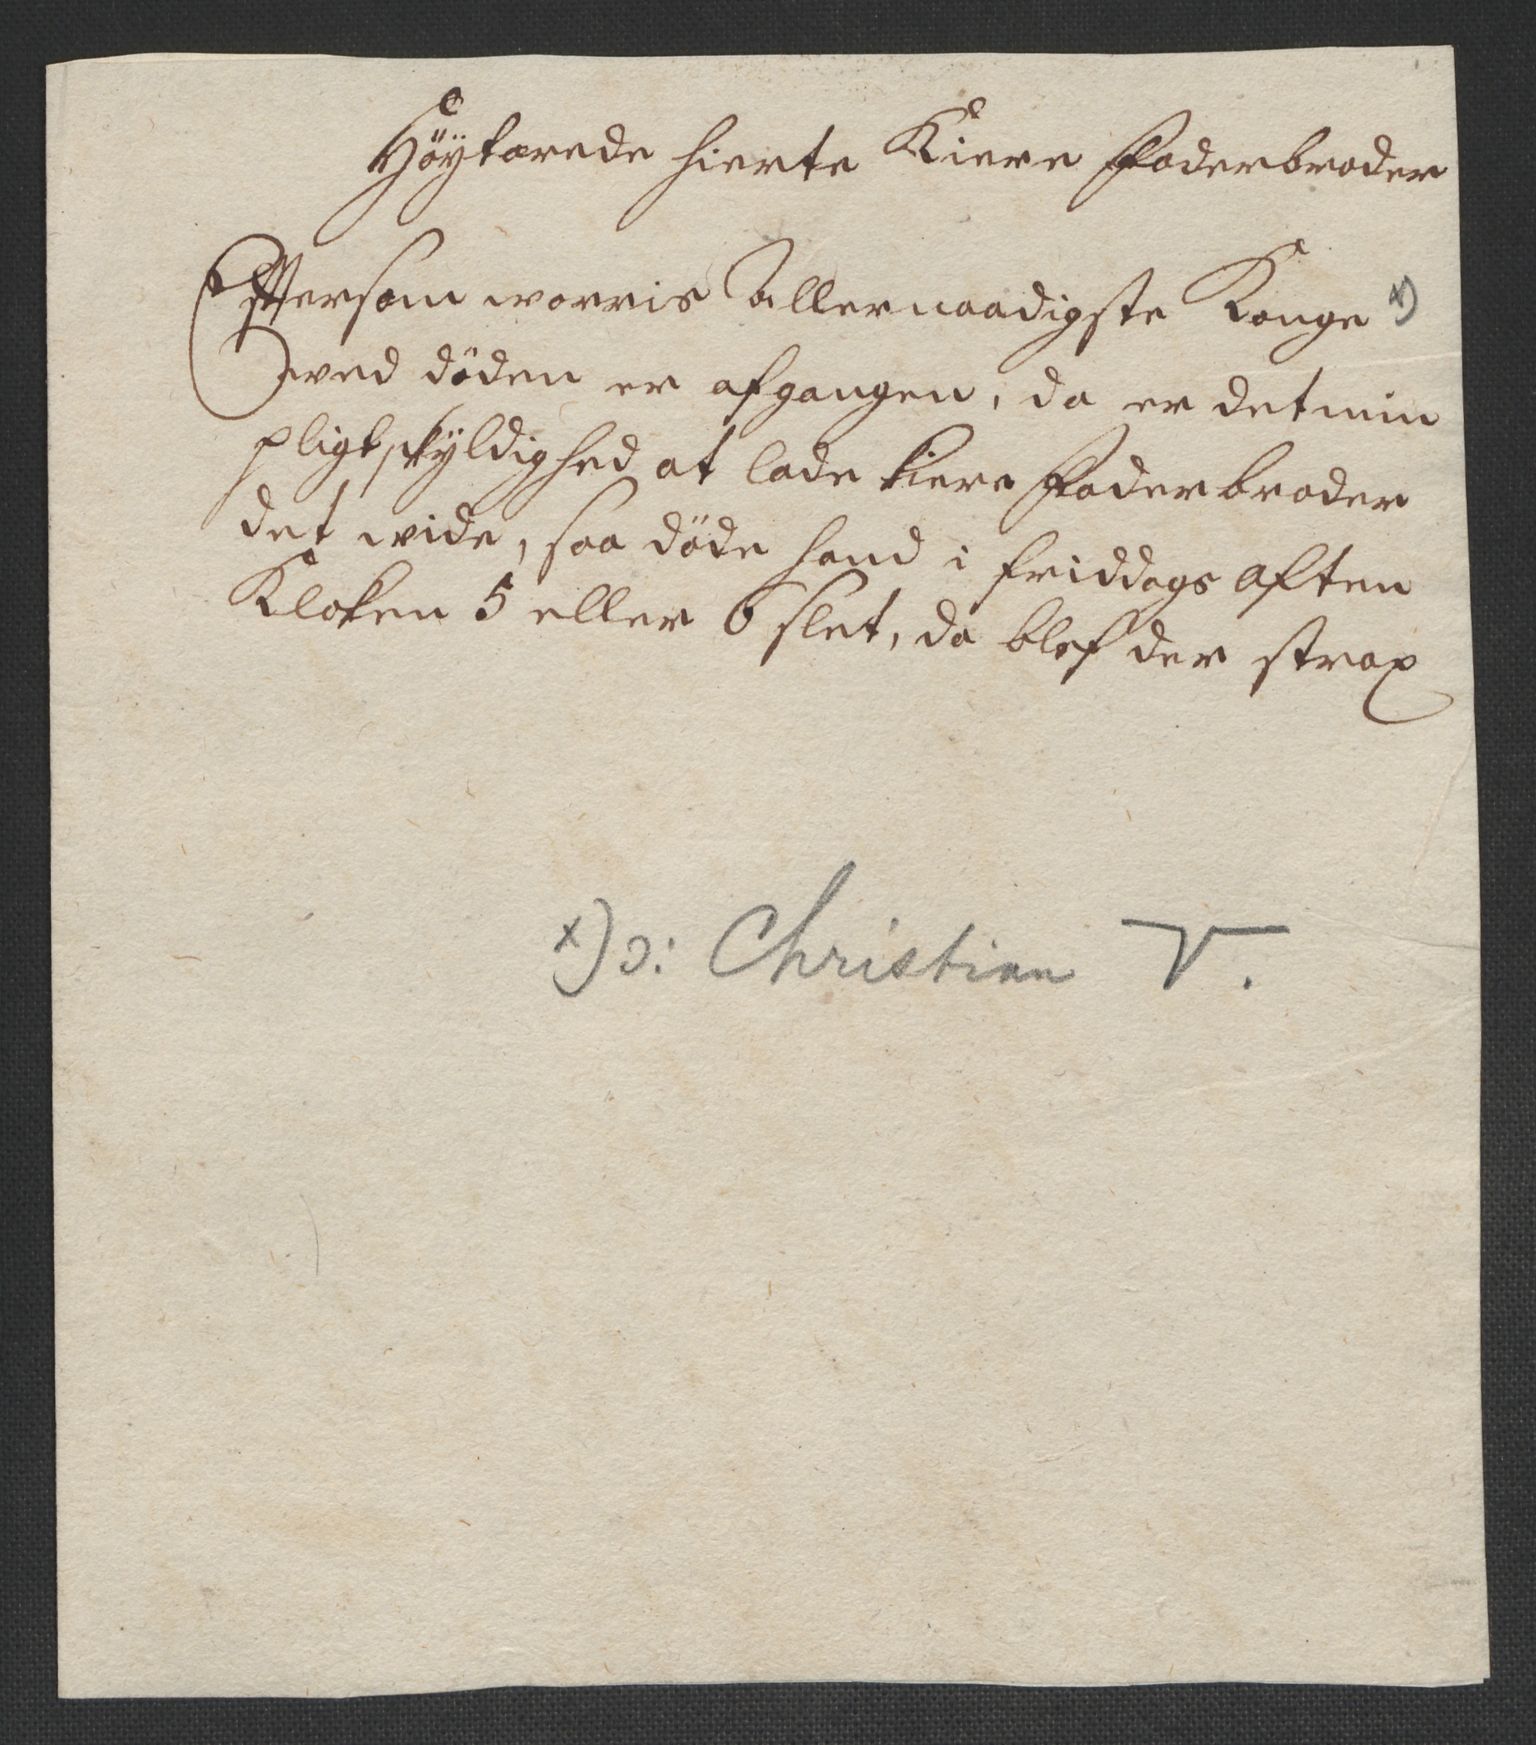 Höytærede hierte Kiere Faderbroder
Efftersom worris Allernaadigste Konge x)
wed döden er afgangen, da er det min
pligtskyldighed at lade kiere Faderbroder
det wide, saa döde hand i friddags aften
Kloken 5 eller 6 slet, da blef der strax
x) ɔ: Christian V.